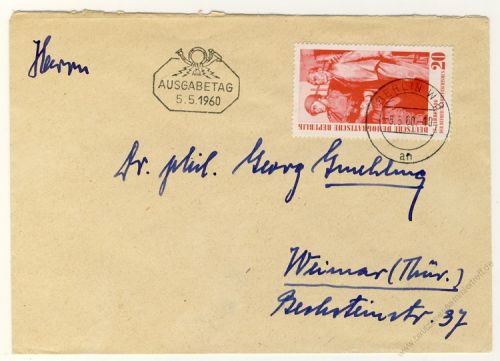 Herrn
AUSGABETAG
5.5.1960
20
DEUTSCHE DEMOKRATISCHE REPUBLIK
BERLIN W 8
-5.5.60-
an
Dr. phil. Georg
Weimar (Thür.)
Bechsteinstr. 37